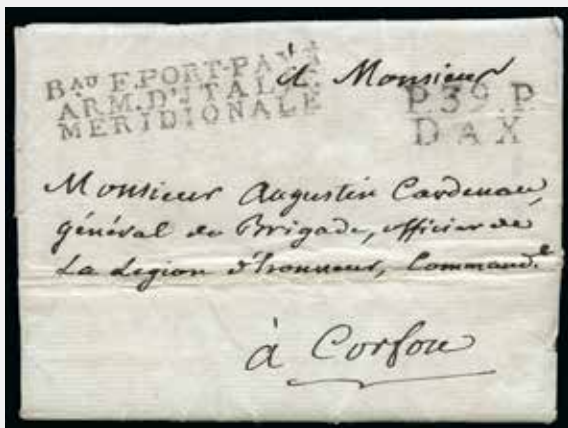 BAU F. PORT-PAYÉ
ARM. D'ITALIE
MERIDIONALE
P.39.P.
DAX
à Monsieur
Monsieur Augustin Cardenau,
général de Brigade, officier de
La Legion d'honneur, Command.t
à Corfou